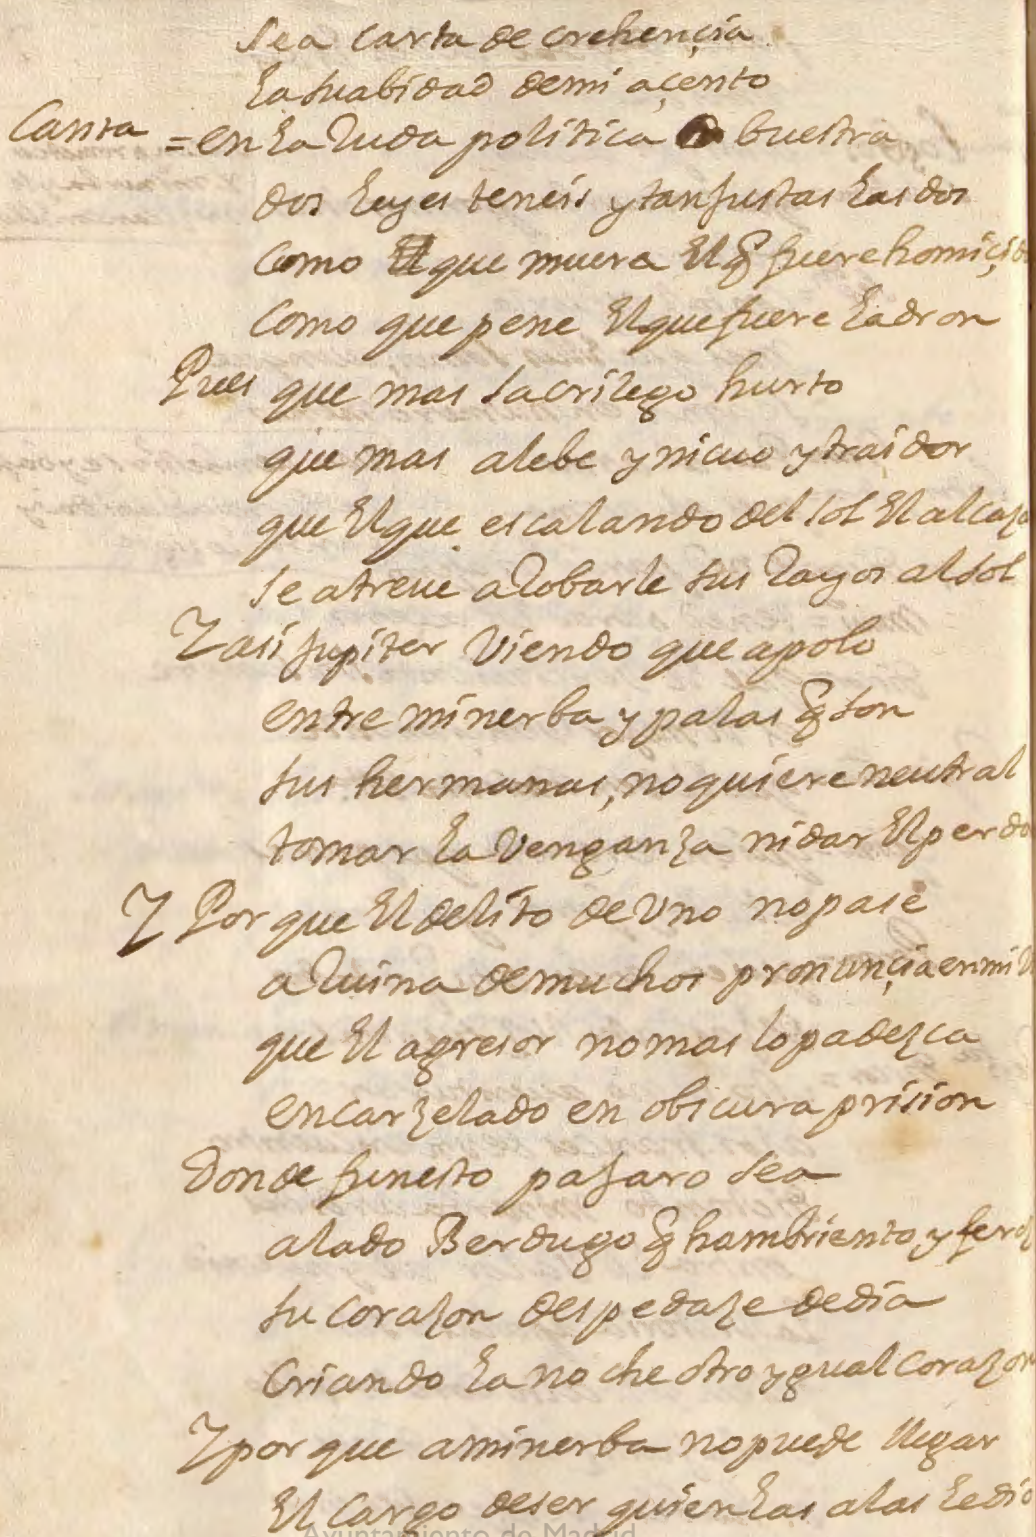 sea carta de crehençia
la suabidad de mi açento
Canta = en la Ruda politica buestra
dos leyes teneis y tan justas las dos
como que muera el q fuere homiçid
como que pene el que fuere ladron
Pues que mas sacrilego hurto
que mas alebe ynicuo y traidor
que el que escalando del sol el alcaza
se atreue a Robarle sus Rayos al sol
Y asi jupiter Viendo que apolo
entre minerba y palas q son
sus hermanas, no quiere neutral
tomar la Venganza ni dar el perdo
Y Porque el delito de Vno no pase
a Ruina de muchos pronunçia en mi
que el agresor no mas lo padezca
encarzelado en obscura prision
donde funesto pajaro sea
alado Berdugo q hambriento y feroz
su corazon despedaze de dia
Criando la noche otro ygual corazon
Y por que a minerba no puede llegar
el cargo de ser quien las alas le dio
Ayuntamiento de Madrid